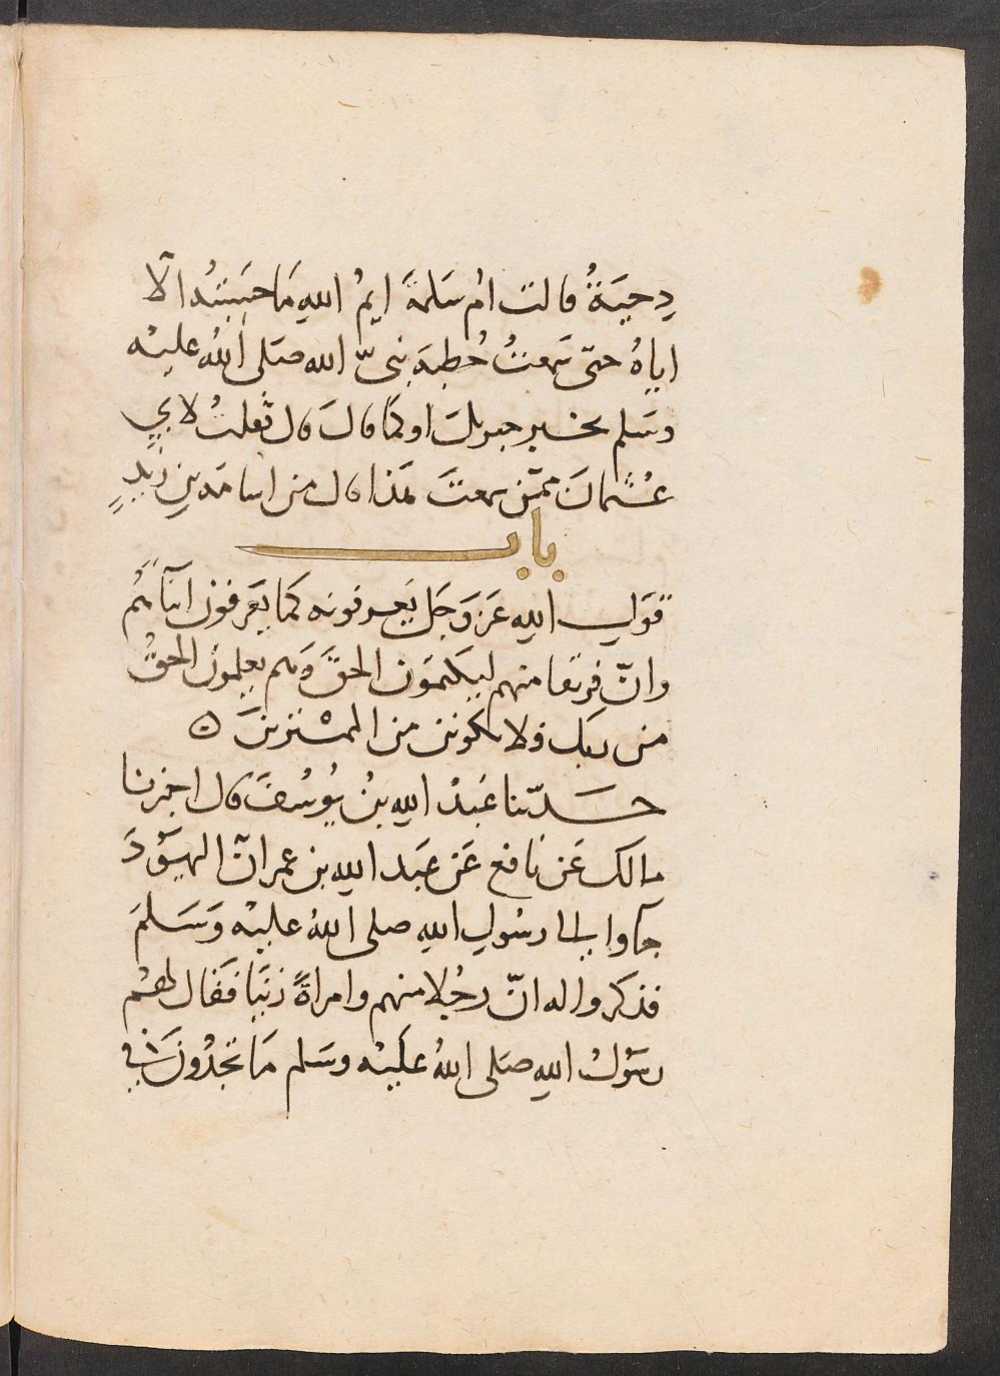 دِحيَةُ قالت ام سَلمةَ ايمُ اللهِ مَا حَسِبتُه الّا
اياهُ حتى سَمعتُ خُطبةَ نبىّ الله صَلى اللهُ عليْه
وسَلم بخبر جبريل او كما قالَ قال فقلتُ لابي
عُثمانَ ممّن سمعتَ هَذا قال من اسامَه بن زيدٍ
باب
قَولِ اللهِ عَز وَجَل يَعرفونه كَما يَعرفون ابنآءهُم
وانّ فريقا منهم ليَكتمُون الحقَّ وَهم يعلمون الحقُّ
من ربك فلا تكونن من الممْترينَ
حَدّثنا عَبدُ اللهِ بنُ يُوسُفَ قال اخبرنا
مالك عَن نافع عَن عَبد الله بن عمر انّ اليهُودَ
جآوا الى رسُولِ اللهِ صلى اللهُ عليْه وَسَلمَ
فذكروا له انّ رجُلا منهم وامراةً زنَيَا فَقال لهُم
رسَولُ اللهِ صَلى اللهُ عَليْه وسَلم مَا تجدُونَ في